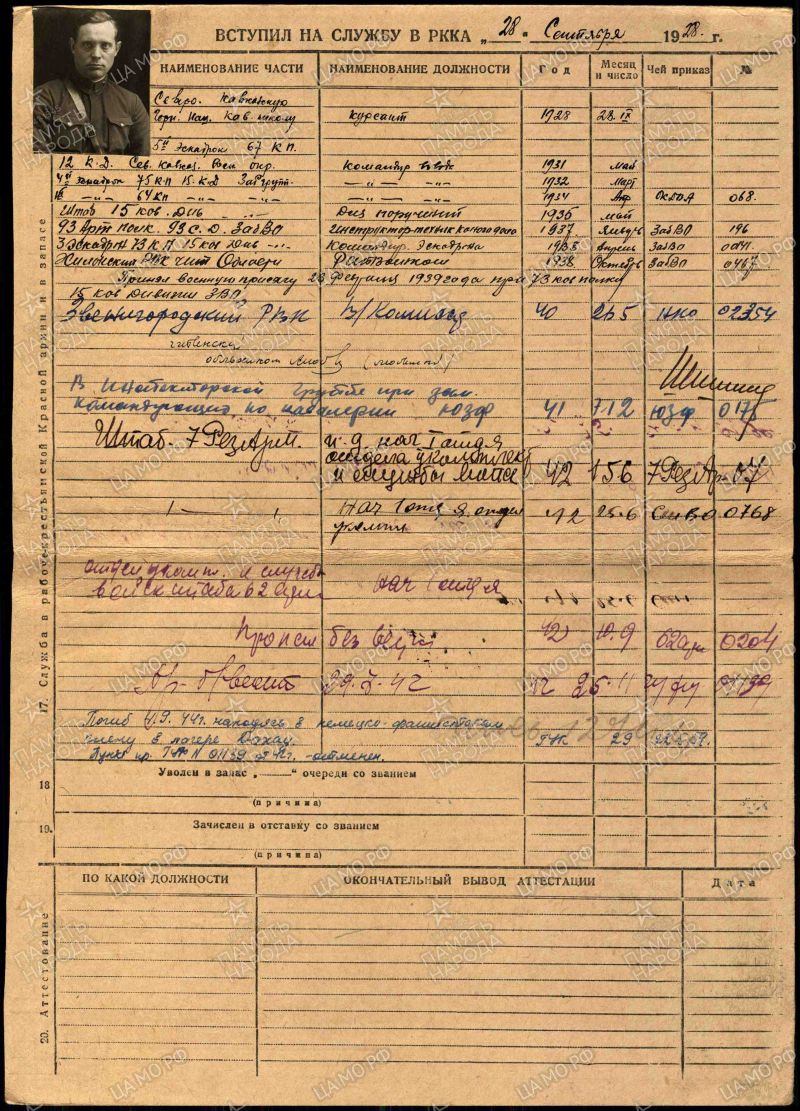 ВСТУПИЛ НА СЛУЖБУ В РККА „28" Сентября 1928 г.
НАИМЕНОВАНИЕ ЧАСТИ НАИМЕНОВАНИЕ ДОЛЖНОСТИ Год Месяц и число Чей приказ №
Северо. Кавказскую
Горн. Нац. Кав. школу Курсант 1928 28 IX
5й Эскадрон 67 К П.
12 К.Д. Сев. Кавказ. Воен. окр. Командир взвода 1931 Май
4й Эскадрон 75 КП 15. К.Д Заб. групп. —„— —„— 1932 Март
—„— —„— 64 КП —„— —„— 1934 ОКДВА 068.
Штаб 15 кав. Див. Для поручений 1936 май
93 Арт полк. 93 С. Д. ЗабВО Инструктор 1937 Январь ЗабВО 196
3 Эскадрон 73 К П 15 кав Див —„— Командир. Эскадрона 1938 Апрель ЗабВО 0041.
Хилокский РВК Чит Области 1938 Октябрь ЗабВО 0467
Принял военную присягу 23 Февраля 1939 года при 73 кав полку
15 кав Дивизии ЗВО
Звенигородский РВК В/Комиссар 40 26 5 НКО 02354
В Инспекторской Группе при зам.
командующего по кавалерии ЮЗФ 41 7 12 ЮЗФ 0175
Штаб 7 Рез Арм. и. д. нач 1 отд-я
отдела укомплект
и службы войск 42 15 6 7 Рез Ар 07
—|— —|— Нач 1 отд-я отдел
укомпл 42 25.6 0768
отдел укомп. и службы
войск штаба 62 Армии нач 1 отд-я
Пропал без вести 42 10.9 62 арм 0204
29. 42 42 25 11 01139
Погиб 4.9. 44г. находясь в немецко-фашистском
плену в лагере Дахау. ГУК 29
Пункт пр. ГУК N 01139 42г. - отменен.
17. Служба в рабоче-крестьянской Красной армии и в запасе
18 Уволен в запас „——" очереди со званием
(причина)
19. Зачислен в отставку со званием
(причина)
ПО КАКОЙ ДОЛЖНОСТИ ОКОНЧАТЕЛЬНЫЙ ВЫВОД АТТЕСТАЦИИ Дата
20. Аттестование
ПАМЯТЬ НАРОДА
ЦАМО.РФ